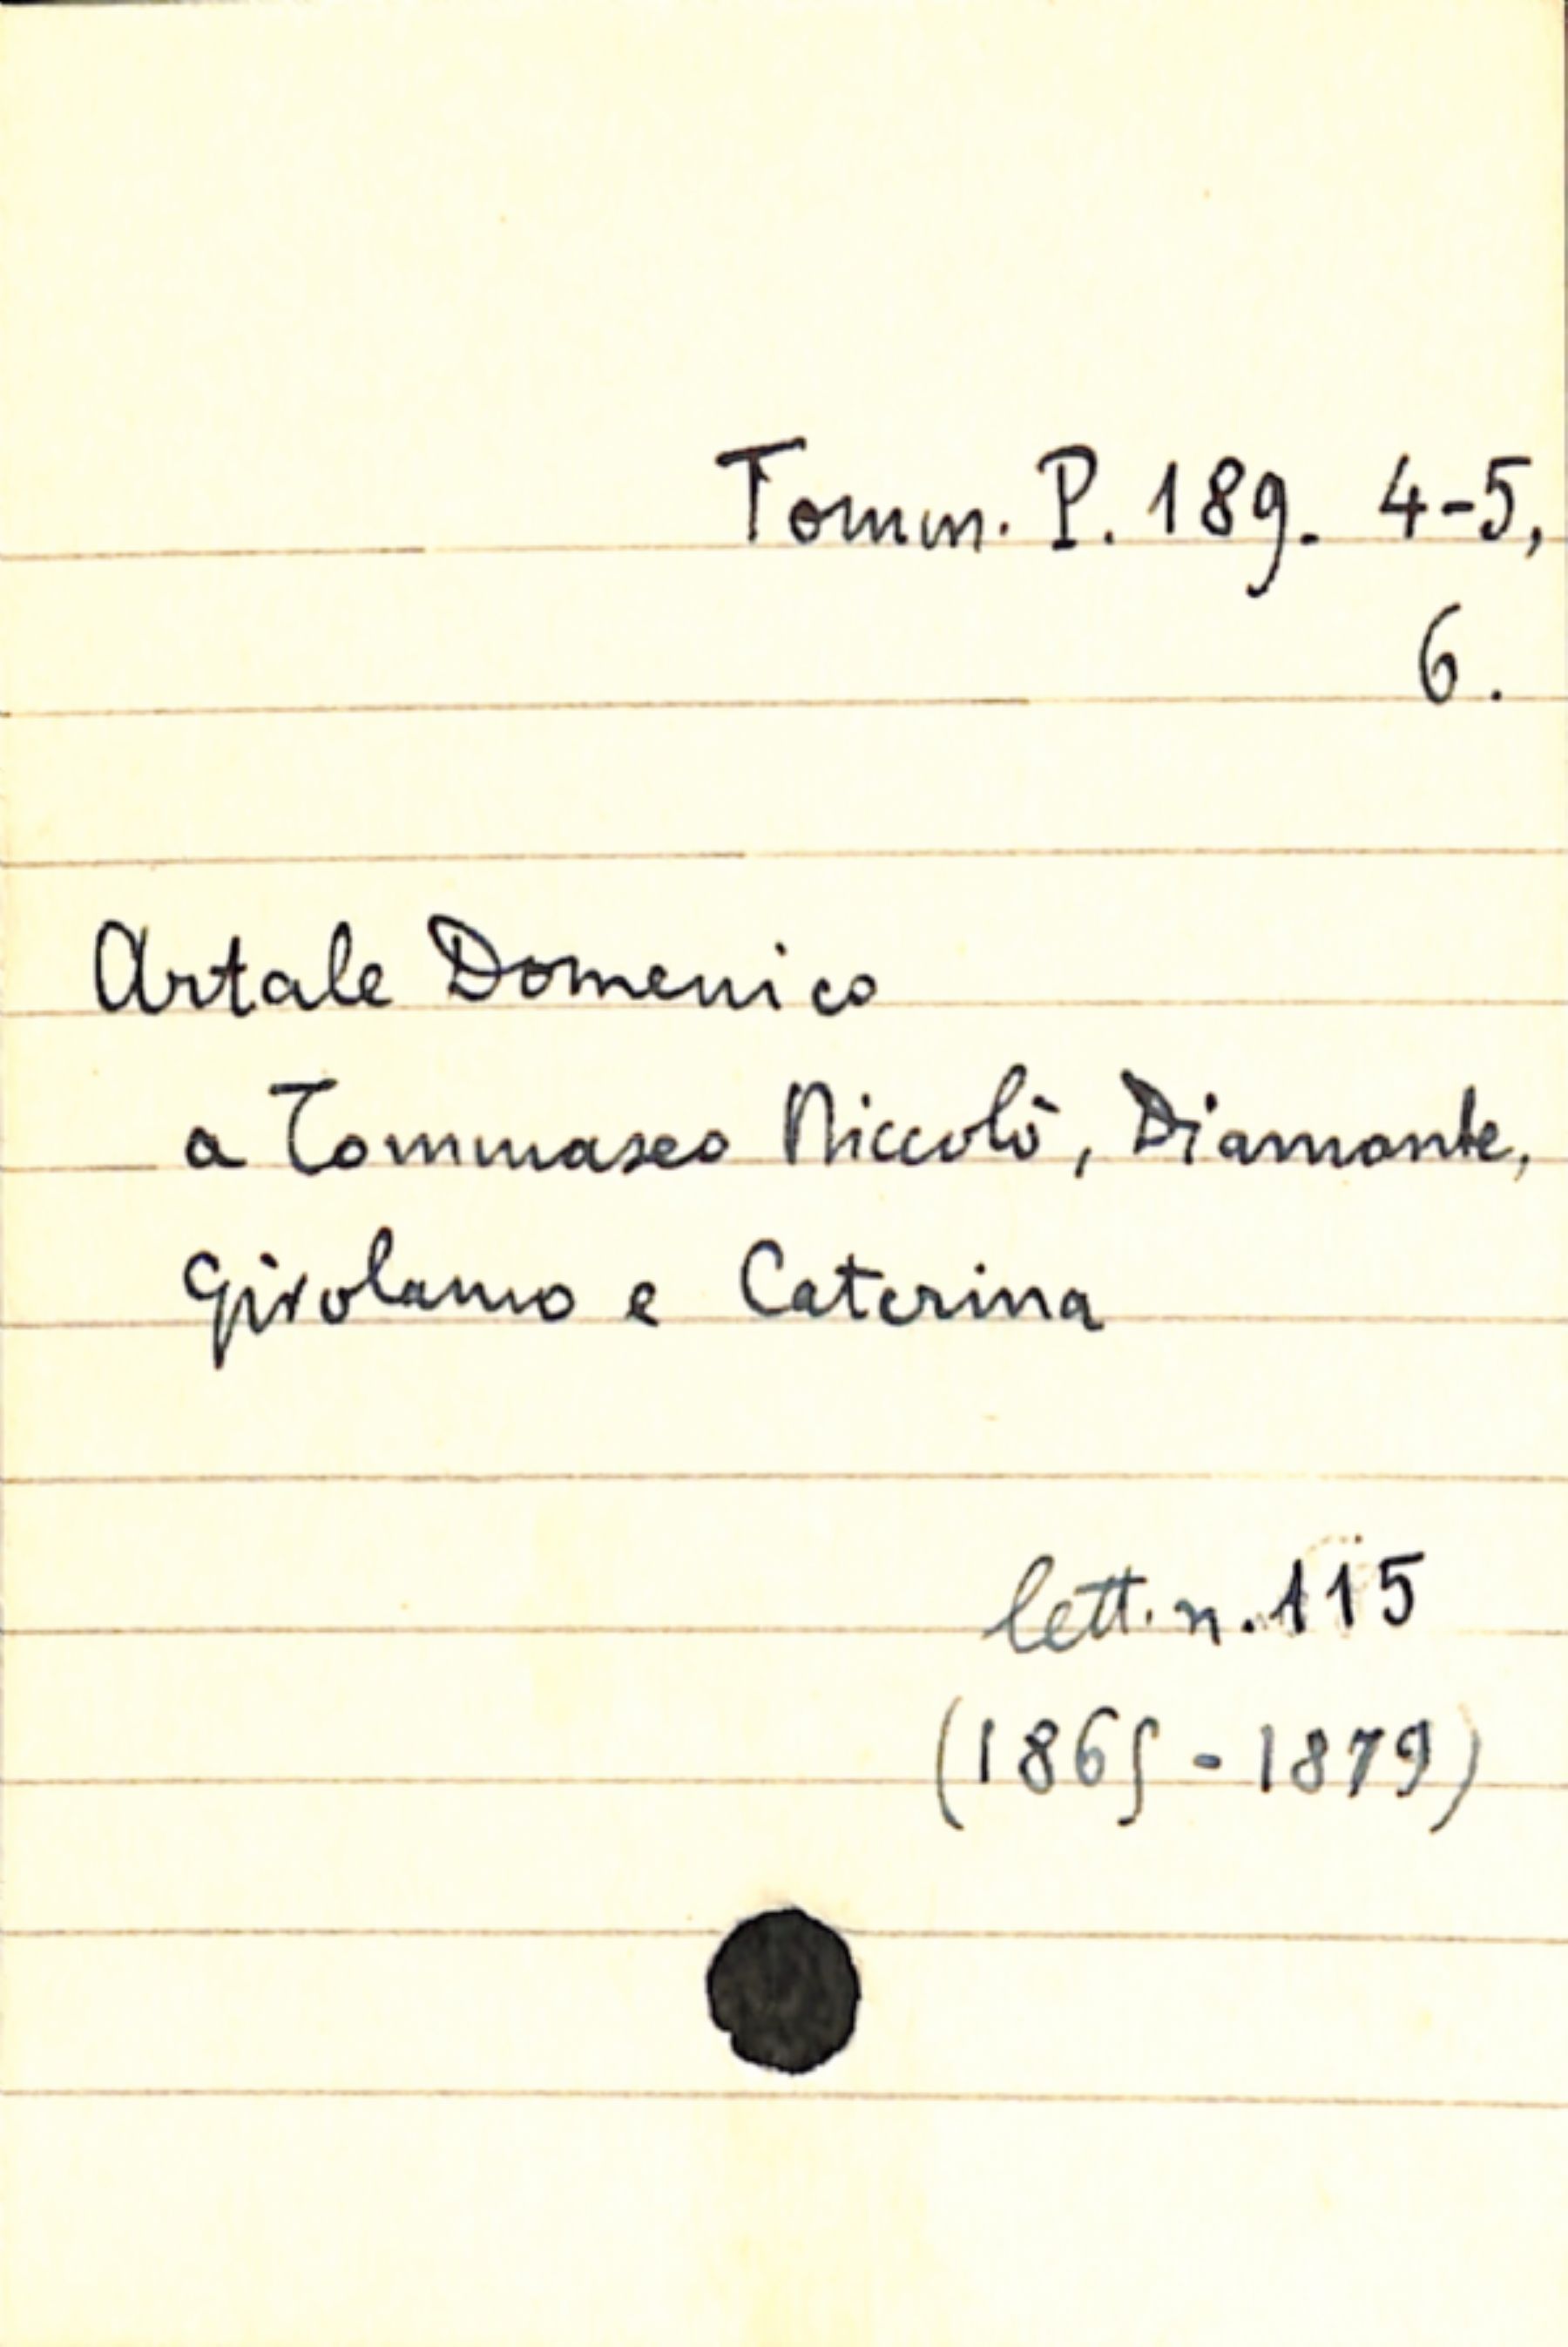 Tomm. P. 189. 4-5,
6.
Artale Domenico
a Tommaseo Niccolò, Diamante,
Girolamo e Caterina
lett. n. 115
(1865 - 1879)